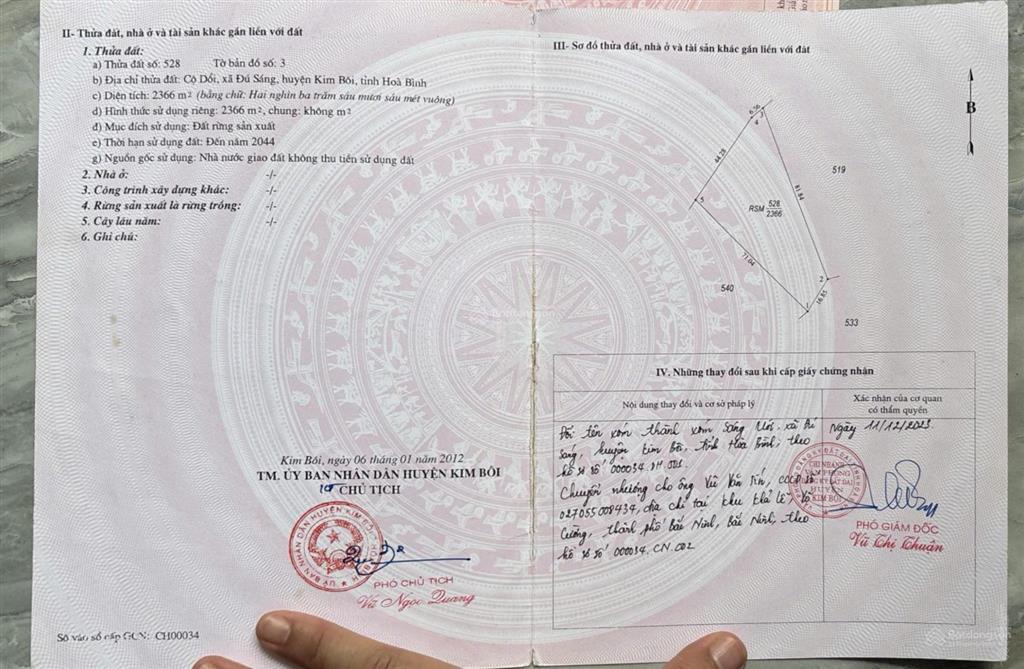 II- Thửa đất, nhà ở và tài sản khác gắn liền với đất
1. Thửa đất:
a) Thửa đất số: 528 Tờ bản đồ số: 3
b) Địa chỉ thửa đất: Cộ Dồi, xã Đú Sáng, huyện Kim Bôi, tỉnh Hoà Bình
c) Diện tích: 2366 m² (bằng chữ: Hai nghìn ba trăm sáu mươi sáu mét vuông)
d) Hình thức sử dụng riêng: 2366 m², chung: không m²
đ) Mục đích sử dụng: Đất rừng sản xuất
e) Thời hạn sử dụng đất: Đến năm 2044
g) Nguồn gốc sử dụng: Nhà nước giao đất không thu tiền sử dụng đất
2. Nhà ở: -/-
3. Công trình xây dựng khác: -/-
4. Rừng sản xuất là rừng trồng: -/-
5. Cây lâu năm: -/-
6. Ghi chú:
Kim Bôi, ngày 06 tháng 01 năm 2012
TM. ỦY BAN NHÂN DÂN HUYỆN KIM BÔI
CHỦ TỊCH
ỦY BAN NHÂN DÂN HUYỆN KIM BÔI
PHÓ CHỦ TỊCH
Vũ Ngọc Quang
Số vào sổ cấp GCN: CH00034
III- Sơ đồ thửa đất, nhà ở và tài sản khác gắn liền với đất
B
6.56
4
3
44.28
519
81.84
5
RSM 528
2366
71.04
2
540
1
16.85
533
IV. Những thay đổi sau khi cấp giấy chứng nhận
Nội dung thay đổi và cơ sở pháp lý
Xác nhận của cơ quan
có thẩm quyền
Đổi tên xóm thành xóm Sáng Mới, xã Đú
Sáng, huyện Kim Bôi, tỉnh Hoà Bình, theo
hồ sơ số 000034.
Chuyển nhượng cho ông Vũ Văn CCCD số
027055008434, địa chỉ tại khu Khả Lễ, Võ
Cường, thành phố Bắc Ninh, Bắc Ninh, theo
hồ sơ số 000034.CN.002
Ngày 11/12/2023
CHI NHÁNH
VĂN PHÒNG
ĐĂNG KÝ ĐẤT ĐAI
HUYỆN
KIM BÔI
PHÓ GIÁM ĐỐC
Vũ Thị Thuân
Batdongsan